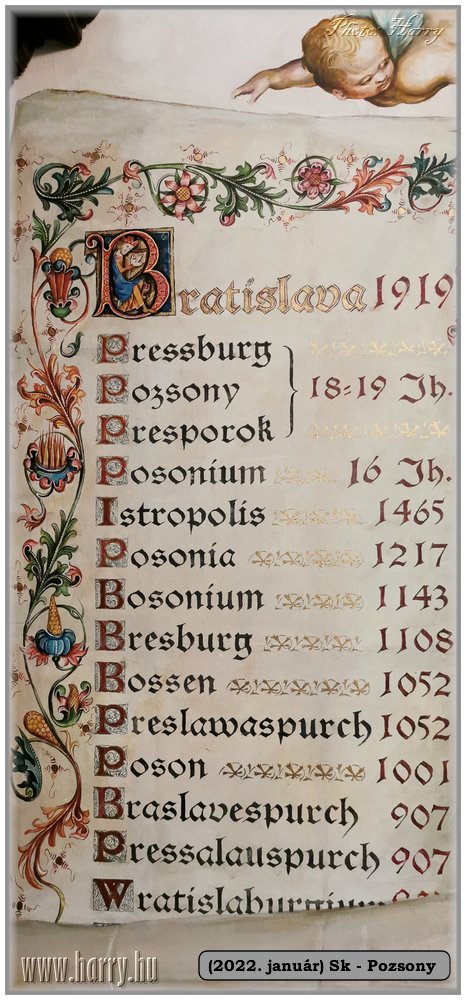 Photo: Harry
Bratislava 1919
Pressburg
Pozsony 18-19 Jh.
Presporok
Posonium 16 Jh.
Istropolis 1465
Posonia 1217
Bosonium 1143
Bresburg 1108
Bossen 1052
Preslawaspurch 1052
Poson 1001
Braslavespurch 907
Pressalauspurch 907
Wratislaburgium
www.horry.hu
(2022. január) Sk - Pozsony